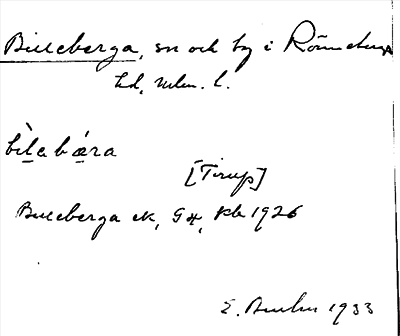 Billeberga, sn och by i Rönneberga
hd, Malm. l.
bìlabæra
[Tirup]
Billeberga ek, G4, Kbl 1926
1933